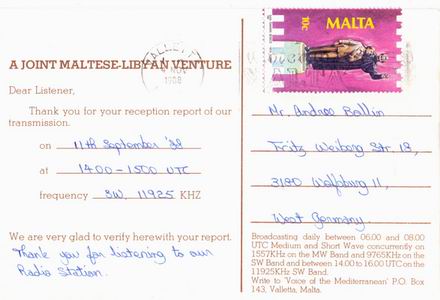 A JOINT MALTESE-LIBYAN VENTURE
Dear Listener,
Thank you for your reception report of our
transmission.
on 11th September '88
at 1400-1500 UTC
frequency SW. 11925 KHZ
We are very glad to verify herewith your report.
Thank you for listening to our
Radio Station.
VALLETTA
NOV
1988
10c MALTA
Mr. Andreo Bollin
Fritz Weiberg Str. 18,
3180 Wolfsburg 11,
West Germany.
Broadcasting daily between 06.00 and 08.00
UTC Medium and Short Wave concurrently on
1557KHz on the MW Band and 9765KHz on the
SW Band and between 14.00 to 16.00 UTC on the
11925KHz SW Band.
Write to 'Voice of the Mediterranean' P.O. Box
143, Valletta, Malta.